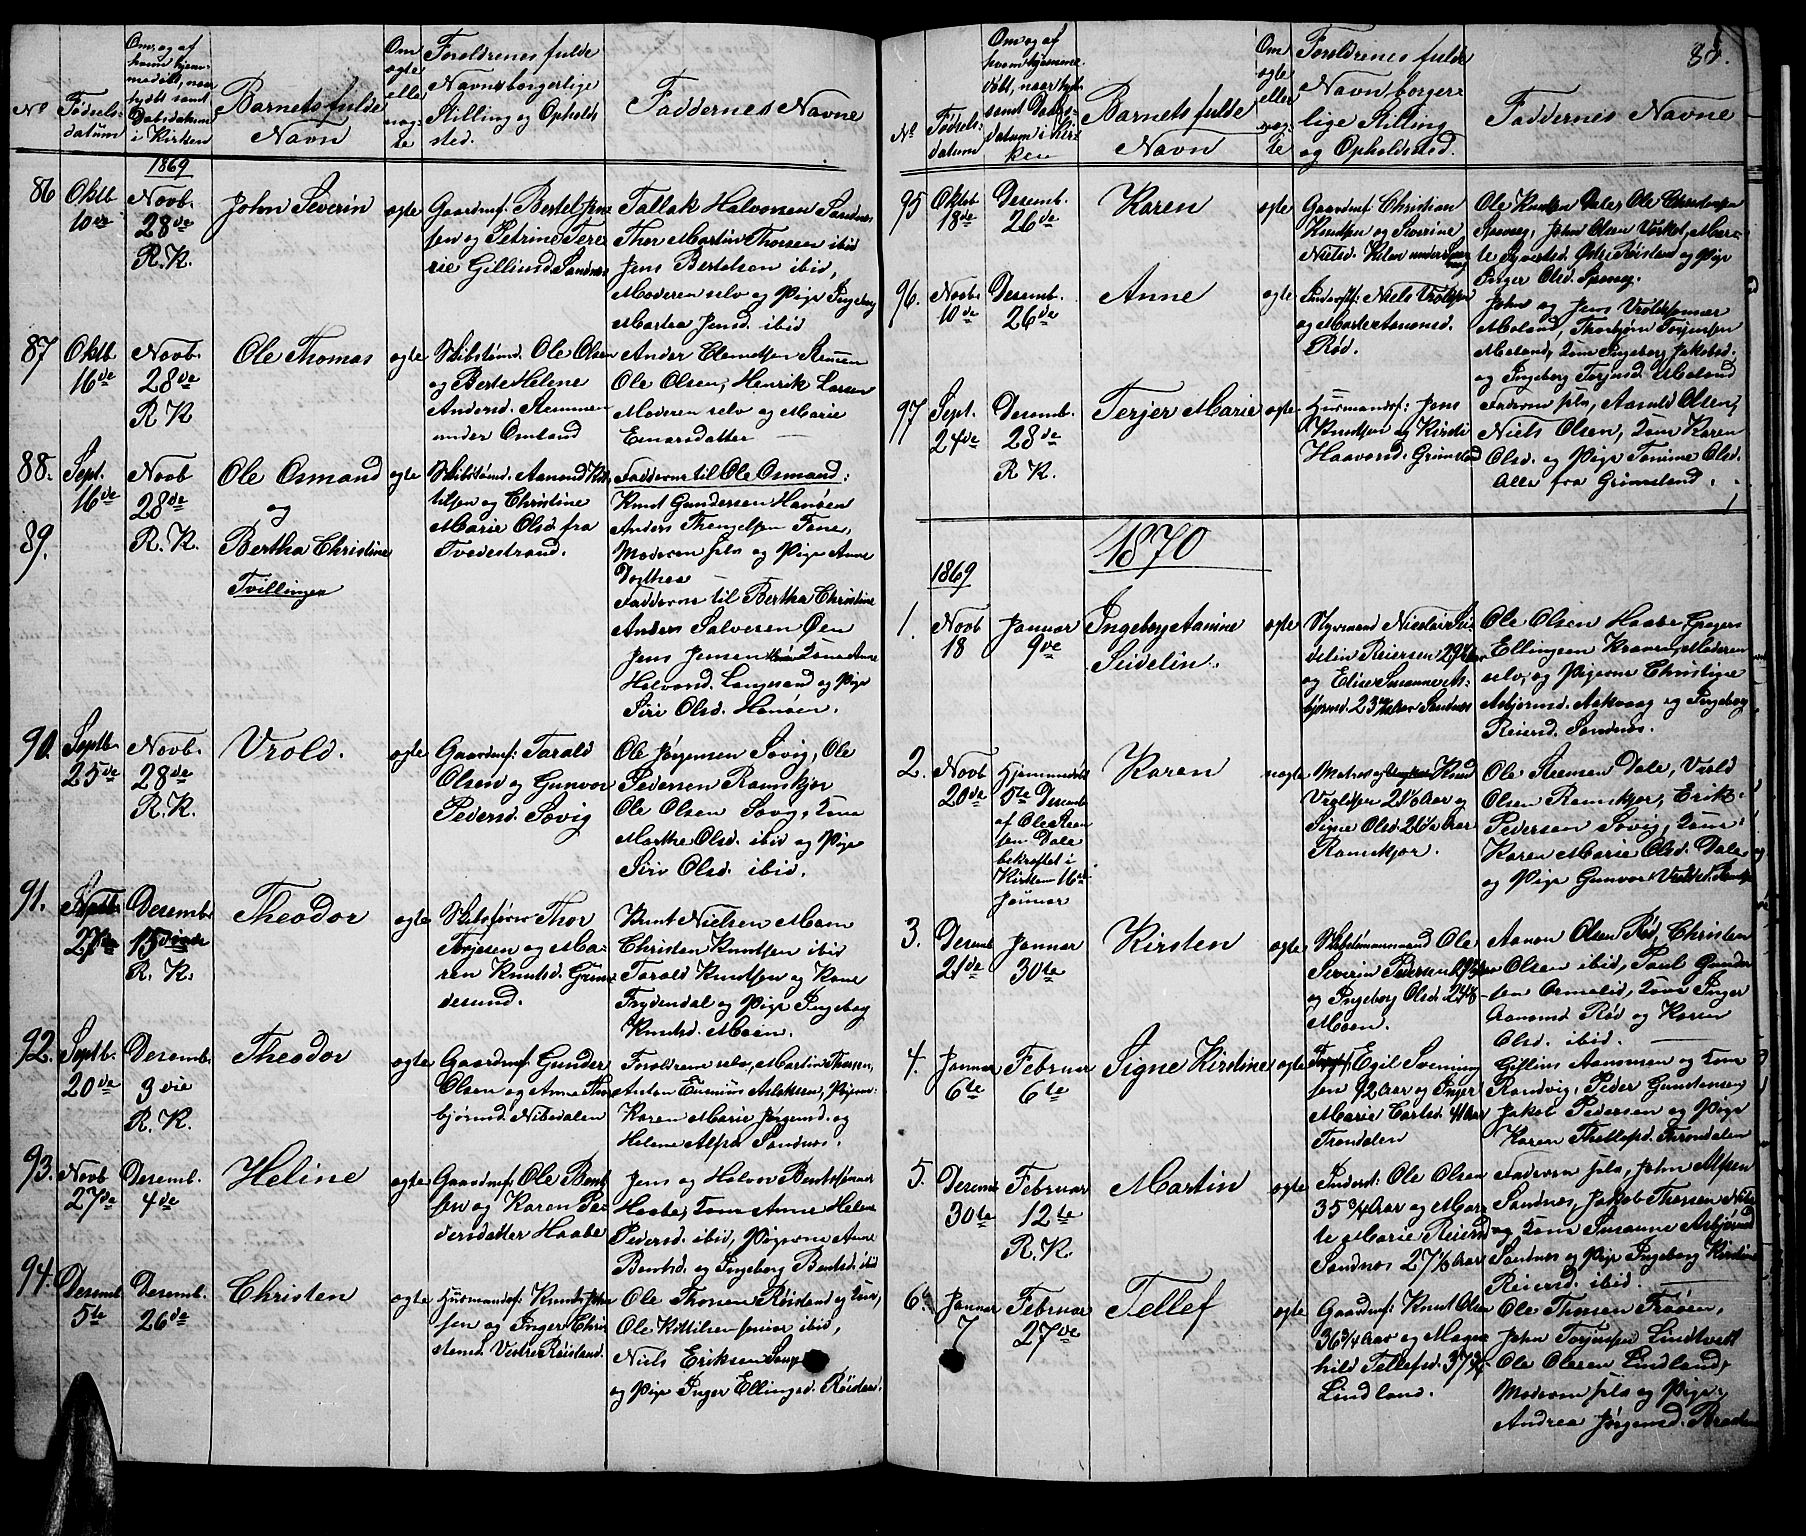 No
Fødsels-
datum
Om, og af
hvem hjem-
medøbt, naar
døbt samt
Daabsdatum
i Kirken
Barnets fulde
Navn
Om
ægte
eller
uæg-
te
Forældrenes fulde
Navn borgerlige
Stilling og Opholds
sted.
Faddernes Navne
1869
86
Oktb
10de
Novb.
28de
R. K.
John Severin
ægte
Gaardmf. Bertel Jen
sen og Petrine Tere
sie Gillinsd Sandnes
Tallak Halvorsen Sandnes
Thor Martin Thorsen ibid
Jens Bertelsen ibid,
Moderen selv og Pige Ingeborg
Martea Jensd. ibid
87
Oktb
16de
Novb.
28de
R. K
Ole Thomas
ægte
Skibstømd. Ole Olsen
og Berte Helene
Andersd. Stemmen
under Omland
Ander Clemetsen Stemmen
Ole Olsen, Henrik Larsen
Moderen selv og Marie
Einarsdatter
88.
Sept.
16de
Novb
28de
R. K.
Ole Osmand
og
89.
Bertha Christine
Tvillinger
ægte
Skibstømd. Aamund Kit
tilsen og Christine
Marie Olsd fra
Tvedestrand.
Fadderne til Ole Osmand:
Knut Gundersen Hansen
Anders Thengelsen Tane,
Moderen selv og Pige Anne
Dorthea
Fadderne til Bertha Christine
Anders Salvesen Øen
Jens Jensen Kone Anne
Halvorsd. Langesand og Pige
Siri Olsd. Hansen.
90.
Septb.
25de
Novb.
28de
R. K.
Vrold.
ægte
Gaardmf. Tarald
Olsen og Gunvor
Pedersd. Sovig
Ole Jørgensen Sovig, Ole
Pedersen Ramskjør
Ole Olsen Sovg, Kone
Marthe Olsd. ibid og Pige
Siri Olsd. ibid.
91.
Septb.
27de
Desembr
15de
R. K.
Theodor
ægte
Skibsfører Thor
Terjesen og Ma-
ren Knutsd. Grim
desund.
Knut Nielsen Moen
Christen Knutsen ibid
Tarald Knutsen og Kone
Frydendal og Pige Ingeborg
Knutsd. Moen.
92.
Septb.
20de
Desemb.
3die
R. K.
Theodor
ægte
Gaardmf. Gunder
Olsen og Anne Thor
bjørnsd. Nibedalen
Forældrene selv, Martin Thorsen,
Anton Erasmus Aslaksen, Pigerne
Karen Marie Jørgensd. og
Helene Alfsd Sandnes.
93.
Novb
27de
Desemb.
4de
Heline
ægte
Gaardmf. Ole Bent
sen og Karen Pe
dersdatter Haabe
Jens og Halvor Bentssønner
Haabe, Kone Anne Helene
Pedersd. ibid, Pigerne Anne
Bentsd. og Ingeborg Bentsd. ibid
94.
Desemb.
5te
Desemb.
26de
Christen
ægte
Husmandsf. Knud John
sen og Inger Chri
stensd. Vestre Røisland.
Ole Thorsen Røisland og Kone,
Ole Kittilsen senior ibid,
Niels Eriksen
og Pige Inger Ellingsd. Røisland.
80.
No
Fødsels-
datum
Om og af
hvem hjemme-
døbt, naar døbt
samt Daabs-
datum i Kir-
ken
Barnets fulde
Navn
Om
ægte
eller
uæg-
te
Forældrenes fulde
Navn borger-
lige Stilling
og Opholdssted.
Faddernes Navne
95
Oktob
18de
Desemb.
26de
Karen
ægte
Gaardmf. Christian
Knutsen og Severine
Nielsd. Kilen under Spæveg
Ole Knutsen Dale, Ole Christensen
Spæveg, John Olsen Virket, Mar-
te Syvertsd. Østre Røisland og Pige
Inger Olsd. Spæveg.
96.
Novbr
10de
Desemb.
26de
Anne
ægte
Inderstf. Niels Vroldsen
og Marte Aanonsd.
Rød.
John og Jens Vroldsønner
Moland, Thorbjørn Torjussen
Moland, Kone Ingeborg Jakobsd.
og Ingeborg Torjusd. Moland
97
Sept.
24de
Desemb.
28de
R. K.
Terjer Marie
ægte
Husmandsf. Jens
Knudsen og Kirsti
Haavorsd. Grimsland
Faderen selv, Aanuld Olsen,
Niels Olsen, Kone Karen
Olsd. og Pige Tomine Olsd.
Alle fra Grimsland.
1870
1869
1.
Novb
18
Januar
9de
Ingeborg Aanine
Seidelin.
ægte
Styrmand Nicolai Sei
delin Reiersen 29 Aar
og Elise Susanne As-
bjørnsd. 23 Aar Sandnes
Ole Olsen Haabe, Gregers
Ellingsen Kraaen, Moderen
selv og Pigerne Christine
Asbjørnsd. Askvaag og Ingeborg
Reiersd. Sandnes.
2.
Novb
20de
Hjemmedøbt
5te Desemb
af Ole Steen
sen Dale
bekræftet i
Kirken 16de
Januar
Karen
uægte
Matros og Knud
Vroldsen 21½ Aar og
Signe Olsd. 26½ Aar
Ramskjør.
Ole Steensen Dale, Vrold
Olsen Ramskjør, Erik
Pedersen Sovig, Kone
Karen Marie Olsd. Dale
og Pige Gunvor Vroldsd.
3.
Desemb
21de
Januar
30te
Kirsten
ægte
Skibstømmermand Ole
Severin Pedersen 27¾ Aar
og Ingeborg Olsd. 24
Moen.
Aanon Olsen Rød, Christen
Olsen ibid, Paul Gunder
sen Ormelid, Kone Inger
Aanonsd Rød og Karen
Olsd. ibid.
4.
Januar
6te
Februar
6te
Signe Kirstine
ægte
Egil Svenning
sen 42 Aar og Inger
Marie Carlsd. 41 Aar
Trondalen
Gillius Aanonsen og Kone
Randvig, Peder Gunstensen
Jakob Pedersen og Pige
Karen Thellefsd. Throndalen
5.
Desemb
30te
Februar
12te
R. K.
Martin
ægte
Inderst. Ole Olsen
35¾ Aar og Mar-
te Marie Reiersd
Sandnes 27½ Aar
Faderen selv, John Alfsen
Sandnes, Jakob Thorsen
og Kone Susanne Asbjørnsd
Sandnes og Pige Ingeborg Kirstine
Reiersd. ibid.
6.
Januar
7
Februar
27de
Tellef
ægte
Gaardmf. Knut Olsen
36¾ Aar og Magn-
hild Tellefsd. 37¾
Lindland.
Ole Thorsen Trøen,
John Torjussen Lindtvett
Ole Olesen Lindland,
Moderen selv og Pige
Andrea Jørgensd.